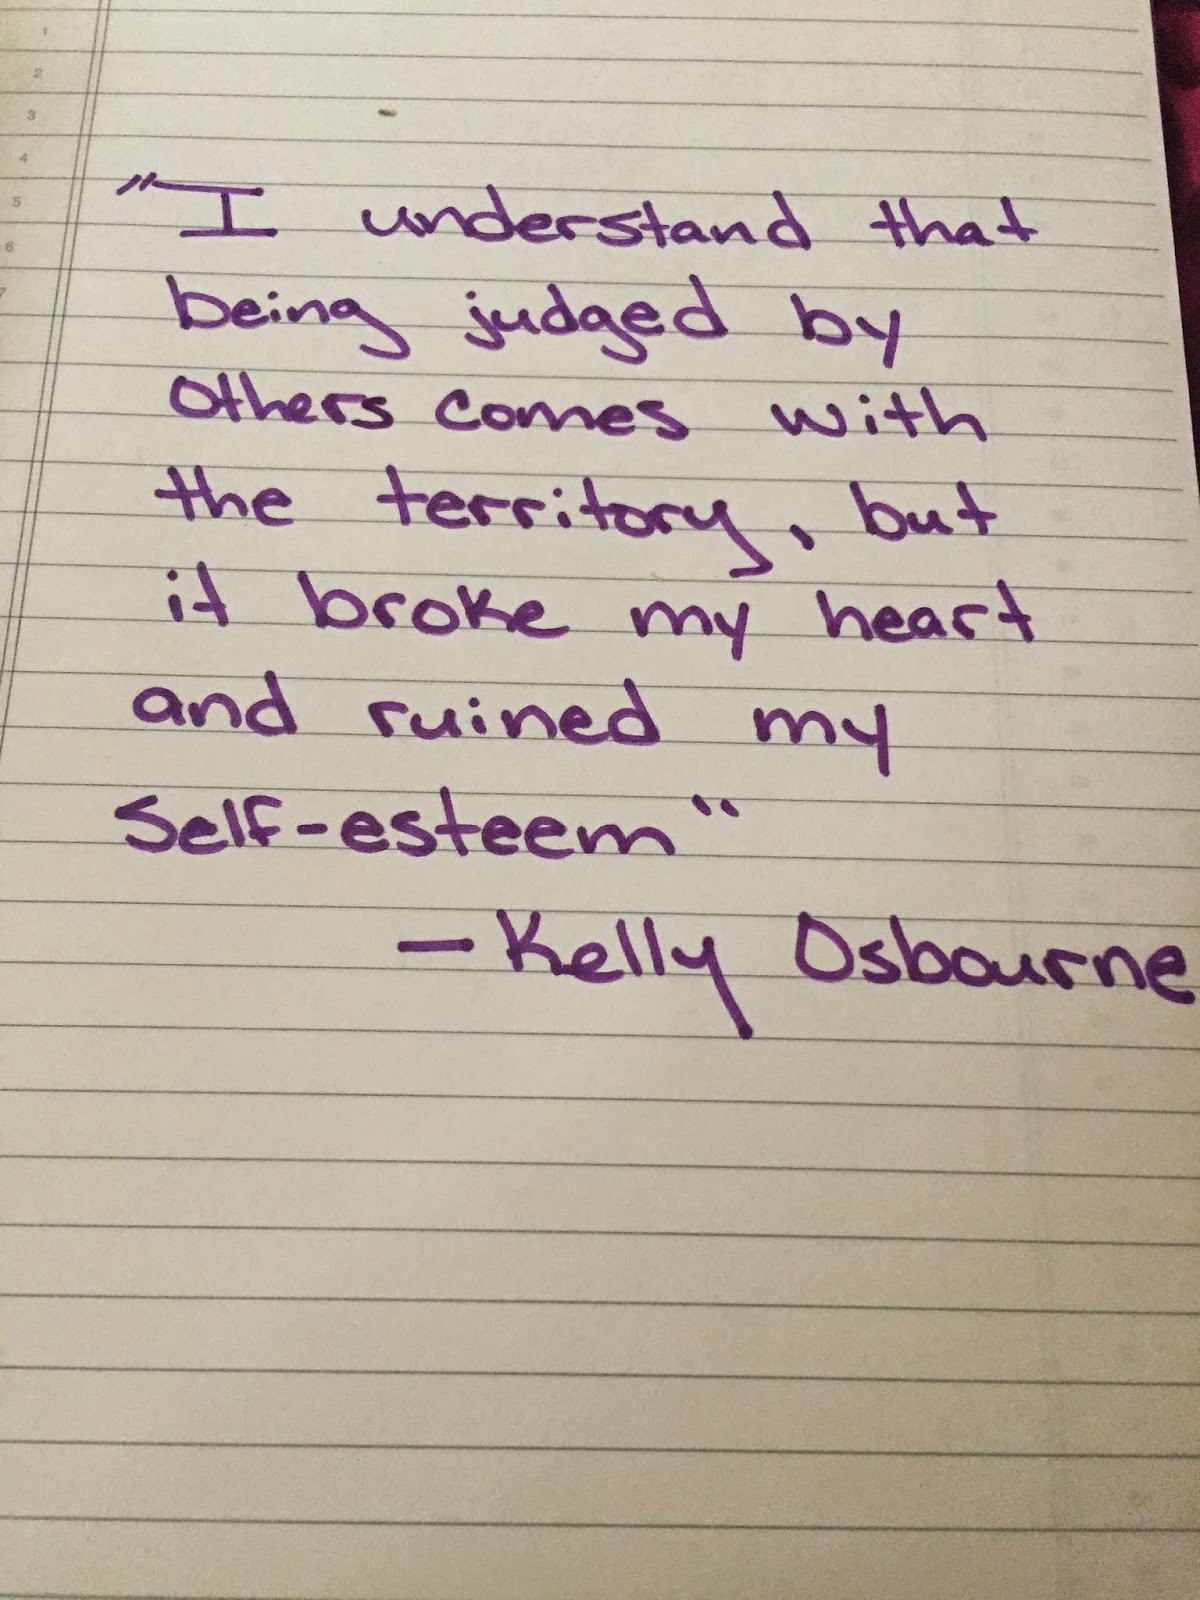 1
2
3
4
5
6
7
"I understand that
being judged by
others comes with
the territory, but
it broke my heart
and ruined my
self-esteem"
- Kelly Osbourne